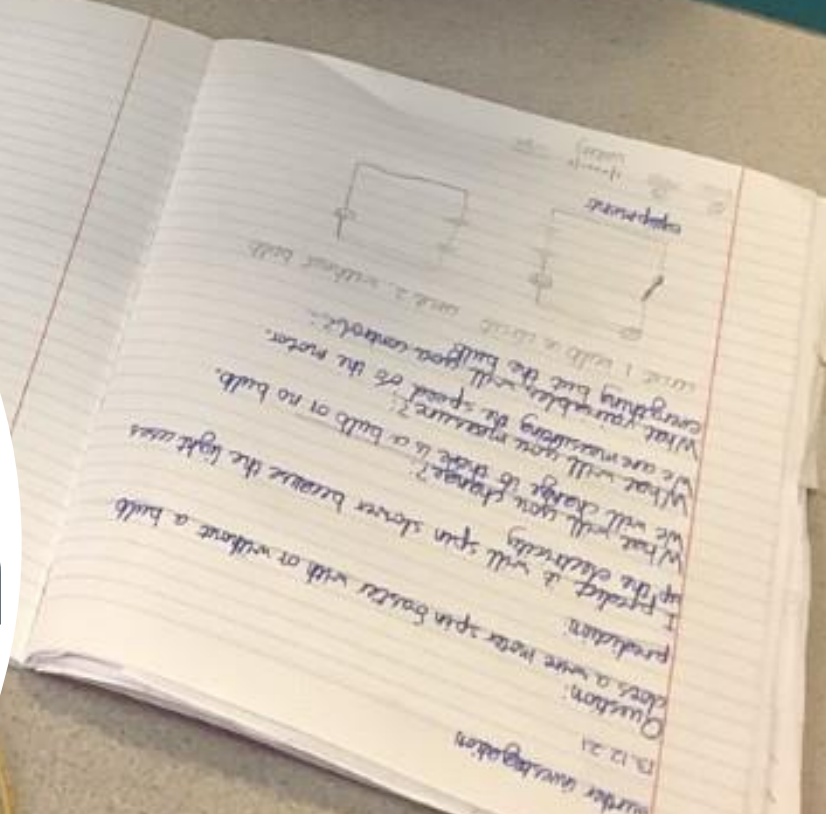 investigation
13.12.21
Question:
does a wire motor spin faster with or without a bulb
prediction:
I predict it will spin slower because the light uses
up the electricity
What will you change?
We will change if there is a bulb or no bulb.
What will you measure?:
We are measuring the speed of the motor.
What variables will you control?:
everything but the bulb
bulb 2. without bulb
equipment